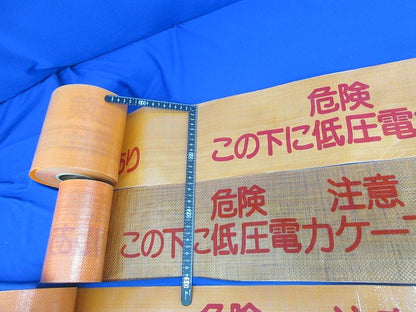 危険
この下に低圧電力
り
危険 注意
この下に低圧電力ケー
危険